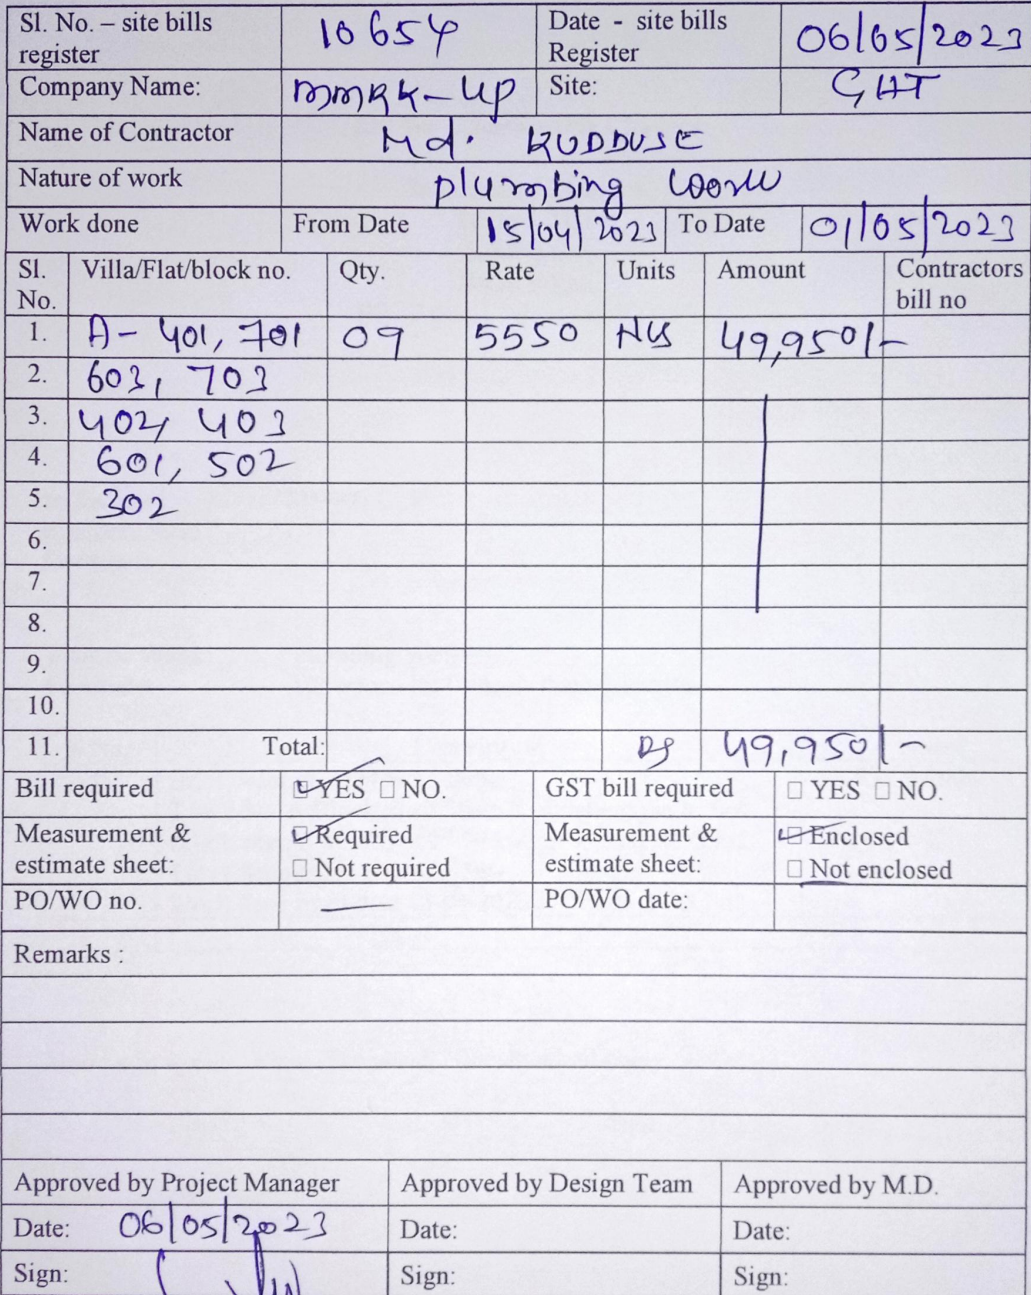 Sl. No. – site bills register 10654 Date - site bills Register 06/05/2023
Company Name: mmRK-Up Site: GHT
Name of Contractor Md. KUDDUSE
Nature of work plumbing work
Work done From Date 15/04/2023 To Date 01/05/2023
Sl. No. Villa/Flat/block no. Qty. Rate Units Amount Contractors bill no
1. A- 401, 701 09 5550 Nos 49,950/-
2. 603, 703
3. 402, 403
4. 601, 502
5. 302
6.
7.
8.
9.
10.
11. Total: Rs 49,950/-
Bill required ☑ YES □ NO. GST bill required □ YES □ NO.
Measurement & estimate sheet: ☑ Required □ Not required Measurement & estimate sheet: ☑ Enclosed □ Not enclosed
PO/WO no. PO/WO date:
Remarks :
Approved by Project Manager Approved by Design Team Approved by M.D.
Date: 06/05/2023 Date: Date:
Sign: Sign: Sign: